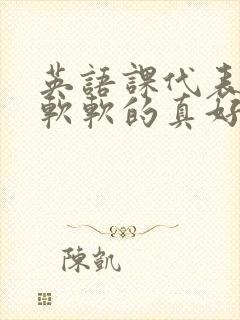 英語課代表
軟軟的真好
陳凱